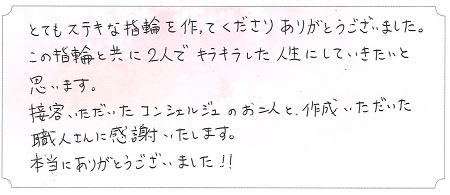 とてもステキな指輪を作ってくださりありがとうございました。
この指輪と共に2人でキラキラした人生にしていきたいと
思います。
接客いただいたコンシェルジュのお二人と、作成いただいた
職人さんに感謝いたします。
本当にありがとうございました!!